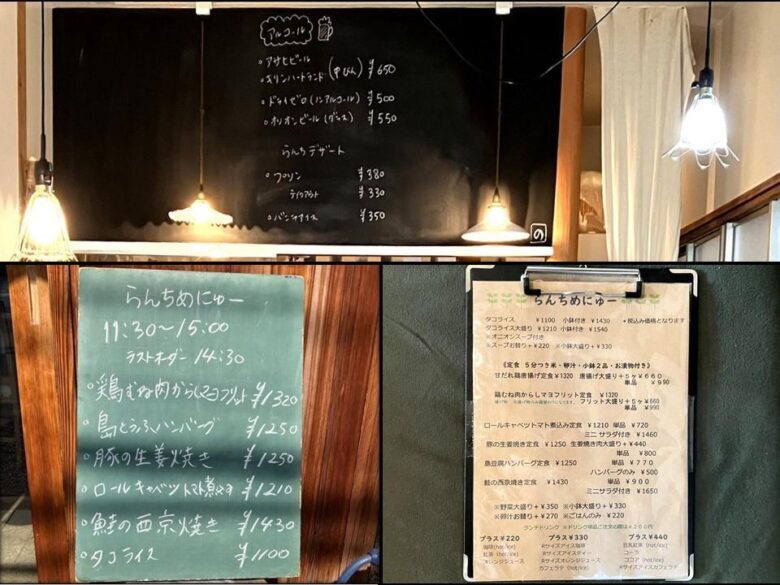 アルコール
。アサヒビール
。キリンハートランド (中びん) ¥650
。ドライゼロ (ノンアルコール) ¥500
。オリオンビール (グラス) ¥550
らんちデザート
。プリン ¥380
テイクアウト ¥330
¥350
の
らんちめにゅー
11:30〜15:00
ラストオーダー 14:30
。鶏むね肉からしマヨフリット ¥1320
。島とうふハンバーグ ¥1250
。豚の生姜焼き ¥1250
。ロールキャベツトマト煮込み ¥1210
。鮭の西京焼き ¥1430
。タコライス ¥1100
らんちめにゅー
タコライス ¥1100 小鉢付き ¥1430 *税込み価格となります
タコライス大盛り ¥1210 小鉢付き ¥1540
※オニオンスープ付き
※スープお替り+¥220 ※小鉢大盛り+¥330
《定食 5分つき米・卵汁・小鉢2品・お漬物付き》
甘だれ鶏唐揚げ定食 ¥1320 唐揚げ大盛り+5ヶ¥660
単品 ¥990
鶏むね肉からしマヨフリット定食 ¥1320
フリット大盛り+5ヶ¥660
単品 ¥990
ロールキャベツトマト煮込み定食 ¥1210 単品 ¥720
ミニサラダ付き ¥1460
豚の生姜焼き定食 ¥1250 生姜焼き肉大盛り+¥440
単品 ¥800
島豆腐ハンバーグ定食 ¥1250 単品 ¥770
ハンバーグのみ ¥500
鮭の西京焼き定食 ¥1430 単品 ¥900
ミニサラダ付き ¥1650
※野菜大盛り+¥350 ※小鉢大盛り+¥330
※卵汁お替り+¥270 ※ごはんのみ ¥220
ランチドリンク ※ドリンク単品ご注文の際は+200円
プラス¥220 プラス¥330 プラス¥440
珈琲(hot/ice) Rサイズアイス珈琲 豆乳紅茶(hot/ice)
紅茶(hot/ice) Rサイズアイスティー コーラ
オレンジジュース Rサイズオレンジジュース ココア(hot/ice)
カフェラテ(hot/ice) Rサイズアイスカフェラテ